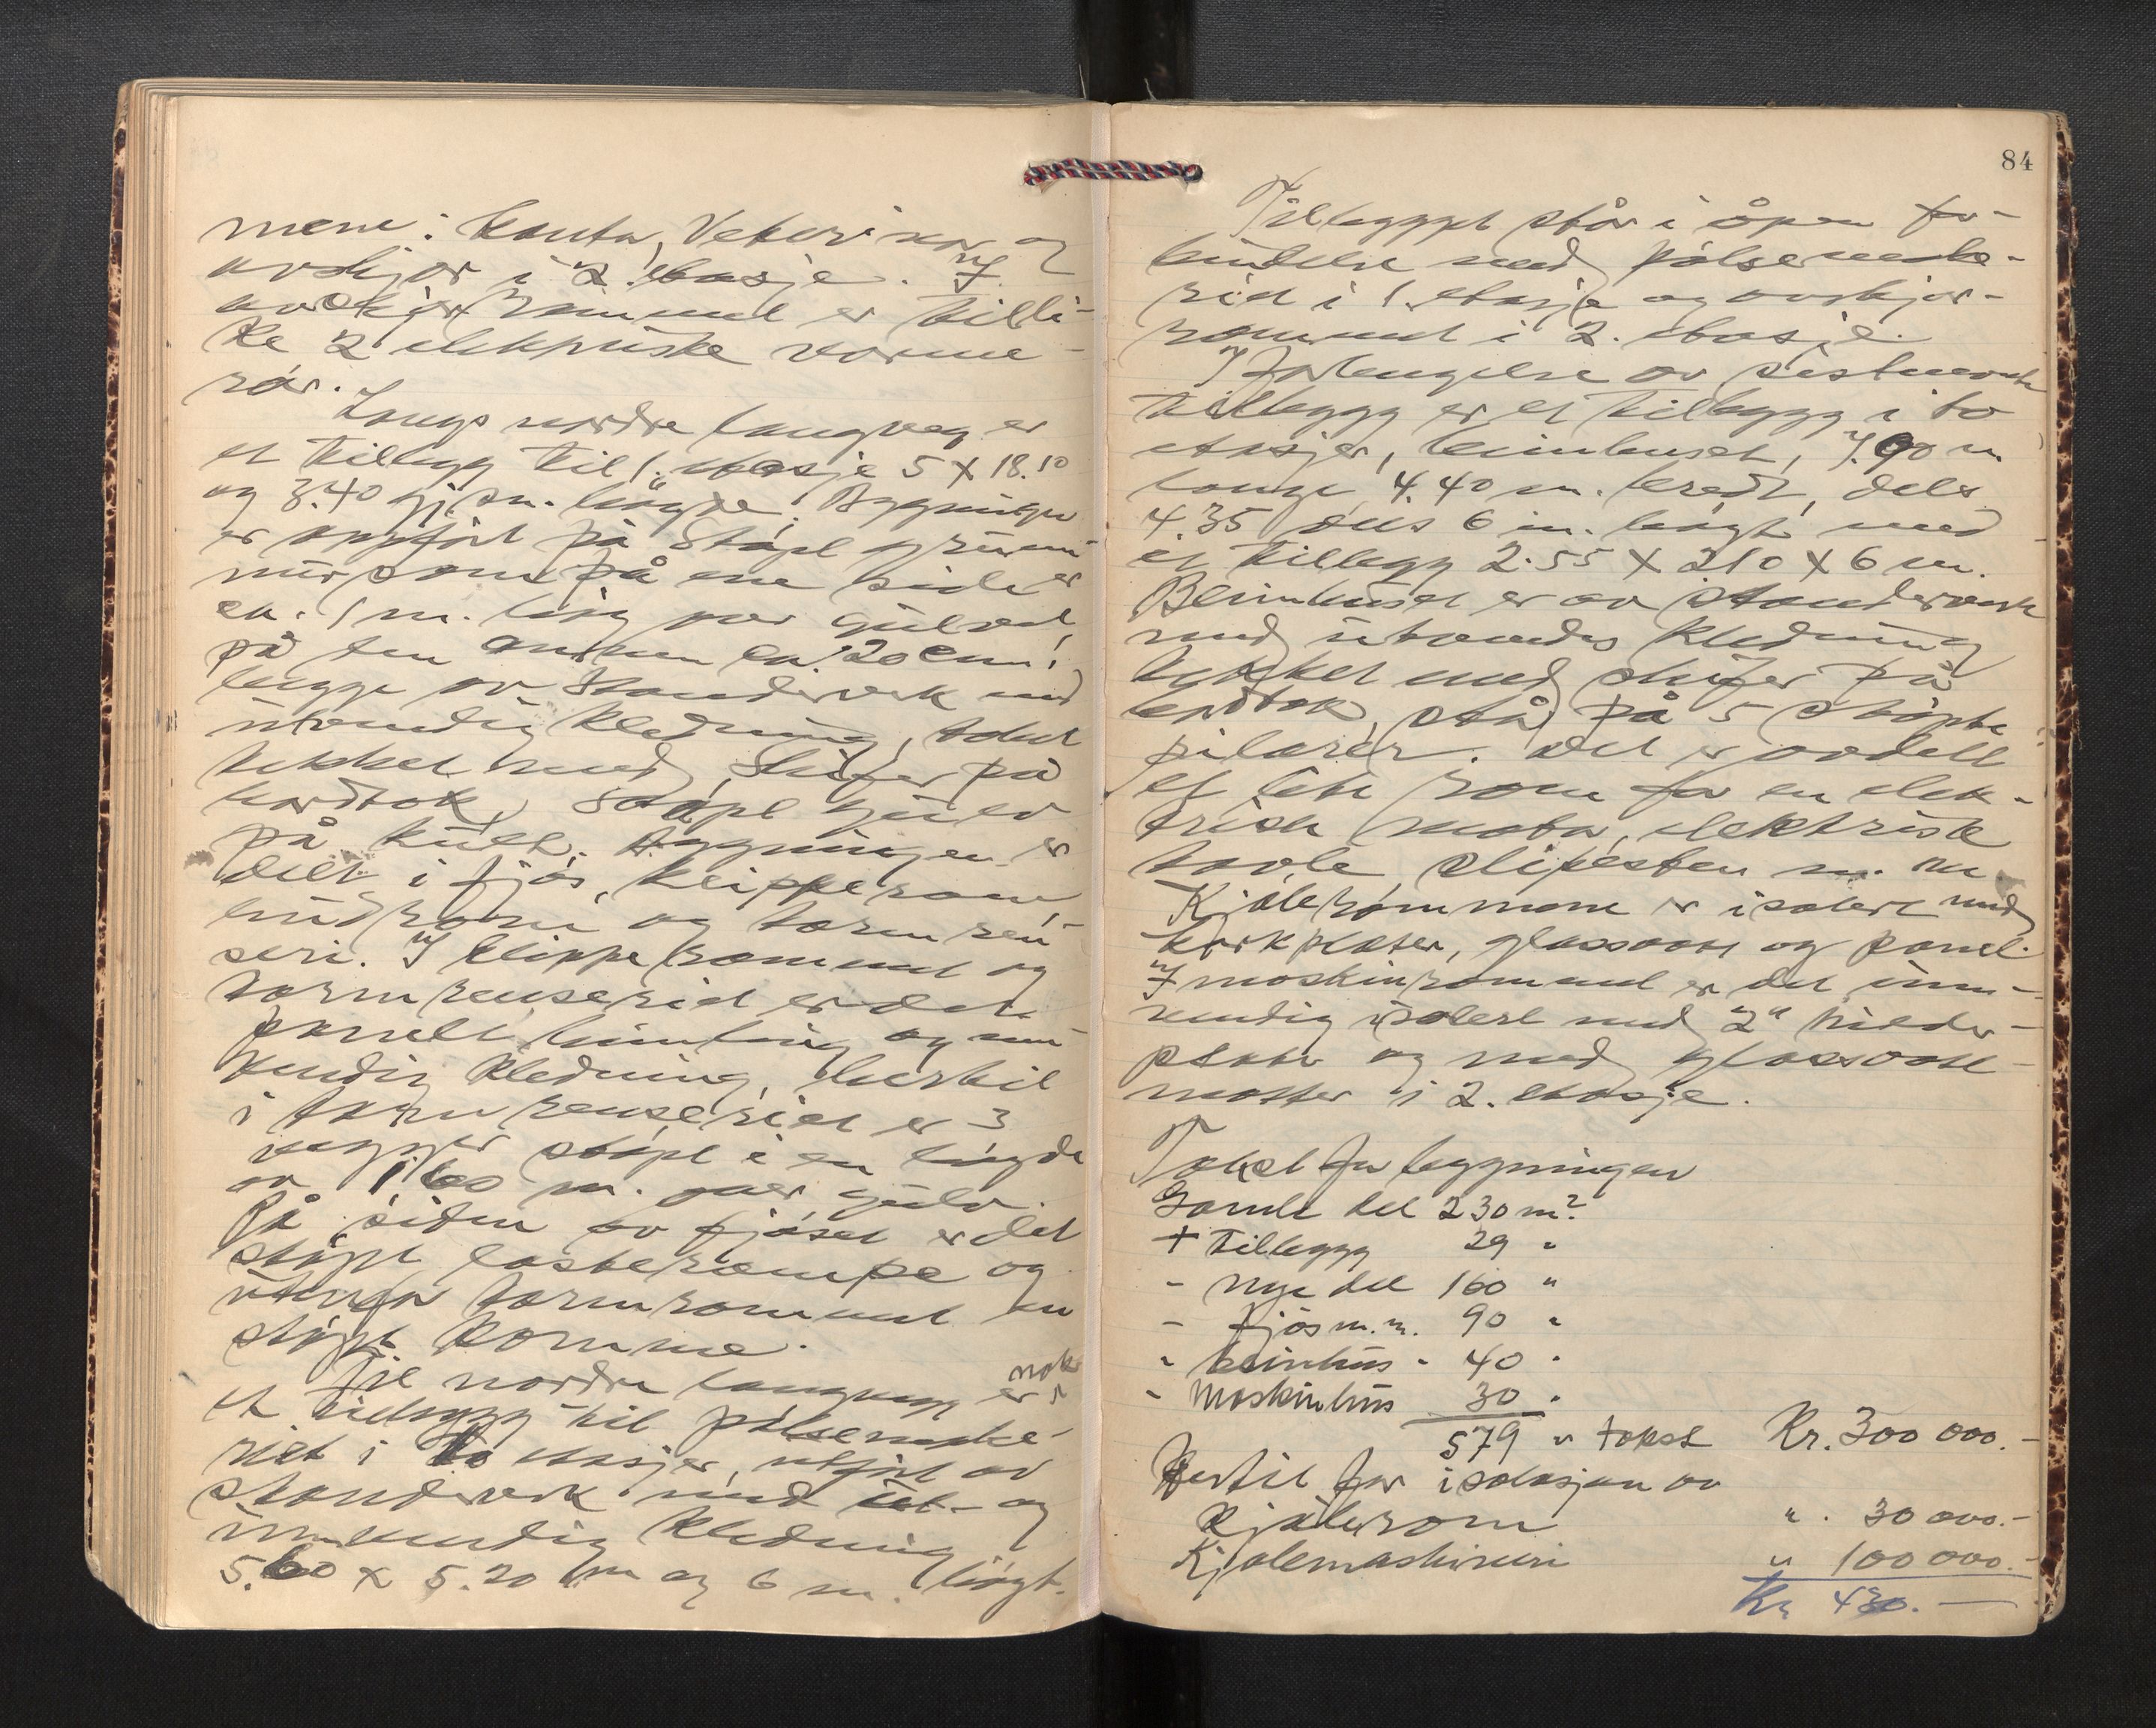 mene: Kontor, Veterinær og
avskjær i 2. etasje. I
avskjærrommet er tilli-
ke 2 elektriske varme-
rør.
Langs nordre langveg er
et tillegg til 1. etasje 5 X 18.10
og 3.40 gj.sn. høgde. Bygningen
er oppført på støpt grunn-
mur som på ene side er
ca. 1 m. høg over gulvet,
på den annen ca. 20 cm.,
bygge av standerverk med
utvendig kledning, taket
tekket med skifer på
bordtak, støpt gulv
på kult. Bygningen er
delt i fjøs, klipperom,
hudrom og tarmren-
seri. I klipperommet og
tarmrenseriet er det
panelt himling og inn-
vendig kledning, hertil
i tarmrenseriet er 3
vegger støpt i en høgde
av 1.60 m. over gulv.
På siden av fjøset er det
støpt lasterampe og
utenfor tarmrommet en
støpt komme.
Til nordre langvegg er nok
et tillegg til pølsemake-
riet i to etasjer, utført av
standerverk med ut- og
innvendig kledning
5.60 x 5.20 m og 6 m. høgt.
84
Tillegget står i åpen for-
bindelse med pølsemake-
riet i 1. etasje og avskjær-
rommet i 2. etasje.
I forlengelse av sistnevnte
tillegg er et tillegg i to
etasjer, beinhuset, 7.90 m
lengde 4.40 m. bredt, dels
4.35 dels 6 m. høgt med
et tillegg 2.55 X 210 X 6 m.
Beinhuset er av standerverk
med utvendes kledning
tekket med skifer på
bordtak, står på 5 støpte
pilarer. Det er avdelt
et lite rom for en elek-
trisk motor, elektrisk
tavle slipesten m. m.
Kjølerommene er isolert med
korkplater, glassvatt og panel.
I maskinrommet er det inn-
vendig isolert med 2" treder-
plater og med glassvatt-
matter i 2. etasje.
Takst for bygningen
Gamle del 230 m²
+ tillegg 29 "
- nye del 160 "
- fjøs m.m. 90 "
- beinhus - 40 "
- Maskinhus 30 "
579 " takst Kr. 300 000.-
Hertil for isolasjon av
kjølerom " . 30 000.-
Kjølemaskineri " 100 000.-
Kr 430.-